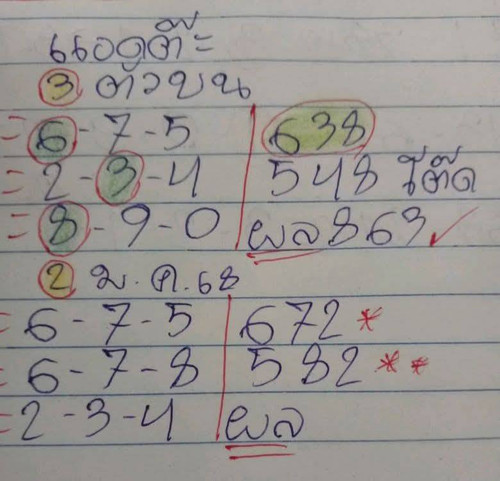 แอดต๊ะ
3 ตัวบน
= 6-7-5 638
= 2-3-4 548 โต๊ด
= 8-9-0 ผล863 ✓
2 ม.ค.68
= 6-7-5 672 *
= 6-7-8 582 **
= 2-3-4 ผล